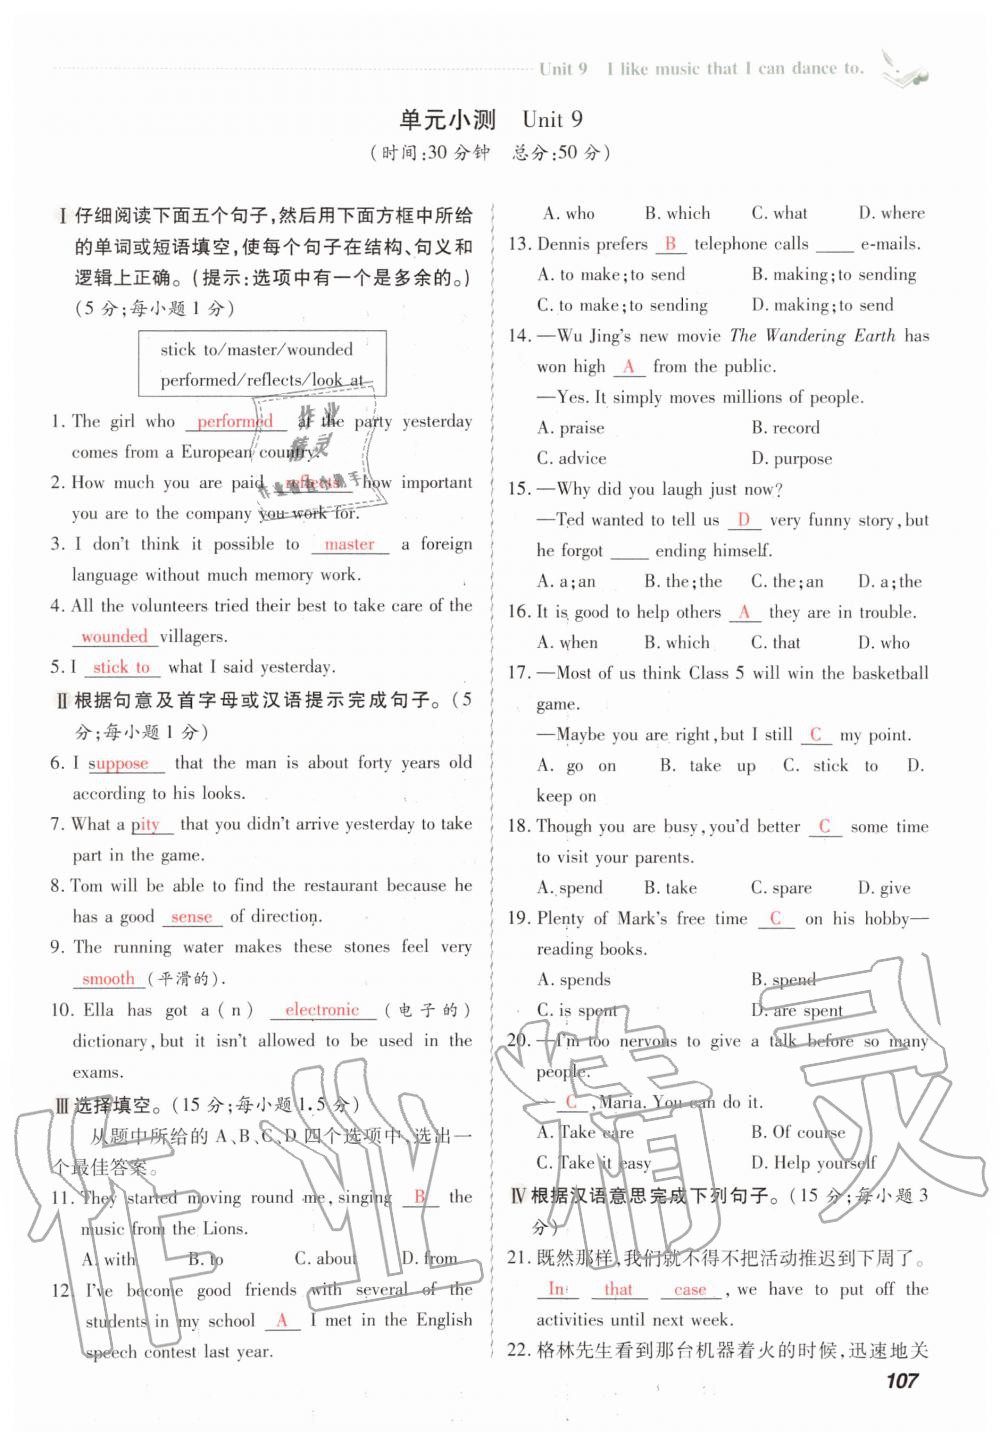 Unit 9 I like music that I can dance to.
单元小测 Unit 9
(时间:30分钟 总分:50分)
Ⅰ 仔细阅读下面五个句子,然后用下面方框中所给
的单词或短语填空,使每个句子在结构、句义和
逻辑上正确。(提示:选项中有一个是多余的。)
(5分;每小题1分)
stick to/master/wounded
performed/reflects/look at
1. The girl who performed at the party yesterday
comes from a European country.
2. How much you are paid reflects how important
you are to the company you work for.
3. I don't think it possible to master a foreign
language without much memory work.
4. All the volunteers tried their best to take care of the
wounded villagers.
5. I stick to what I said yesterday.
Ⅱ 根据句意及首字母或汉语提示完成句子。(5
分;每小题1分)
6. I suppose that the man is about forty years old
according to his looks.
7. What a pity that you didn't arrive yesterday to take
part in the game.
8. Tom will be able to find the restaurant because he
has a good sense of direction.
9. The running water makes these stones feel very
smooth (平滑的).
10. Ella has got a(n) electronic (电子的)
dictionary, but it isn't allowed to be used in the
exams.
Ⅲ 选择填空。(15分;每小题1.5分)
从题中所给的A、B、C、D四个选项中,选出一
个最佳答案。
11. They started moving round me, singing B the
music from the Lions.
A. with B. to C. about D. from
12. I've become good friends with several of the
students in my school A I met in the English
speech contest last year.
A. who B. which C. what D. where
13. Dennis prefers B telephone calls ____ e-mails.
A. to make;to send B. making;to sending
C. to make;to sending D. making;to send
14. —Wu Jing's new movie The Wandering Earth has
won high A from the public.
—Yes. It simply moves millions of people.
A. praise B. record
C. advice D. purpose
15. —Why did you laugh just now?
—Ted wanted to tell us D very funny story, but
he forgot ____ ending himself.
A. a;an B. the;the C. the;an D. a;the
16. It is good to help others A they are in trouble.
A. when B. which C. that D. who
17. —Most of us think Class 5 will win the basketball
game.
—Maybe you are right, but I still C my point.
A. go on B. take up C. stick to D.
keep on
18. Though you are busy, you'd better C some time
to visit your parents.
A. spend B. take C. spare D. give
19. Plenty of Mark's free time C on his hobby—
reading books.
A. spends B. spend
C. is spent D. are spent
20. —I'm too nervous to give a talk before so many
people.
— C , Maria. You can do it.
A. Take care B. Of course
C. Take it easy D. Help yourself
Ⅳ 根据汉语意思完成下列句子。(15分;每小题3
分)
21. 既然那样,我们就不得不把活动推迟到下周了。
In that case , we have to put off the
activities until next week.
22. 格林先生看到那台机器着火的时候,迅速地关
107
作业精灵